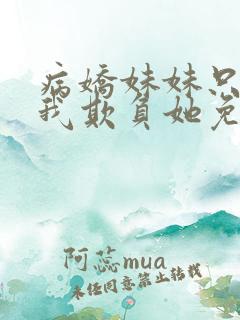 病嬌妹妹只
我欺負她免
阿蕊mua
未经同意禁止转载